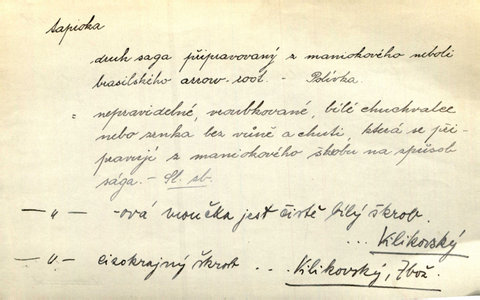 tapioka
druh saga připravovaný z maniokového neboli
brasilského arrow-root. - Polívka.
" nepravidelné, vroubkované, bílé chuchvalce
nebo zrnka bez vůně a chuti, která se při-
pravují z maniokového škrobu na způsob
sága. - Sl. sb.
— " — -ová moučka jest čistě bílý škrob.
... Vilikovský
— " — cizokrajný škrob ... Vilikovský, Zbož.